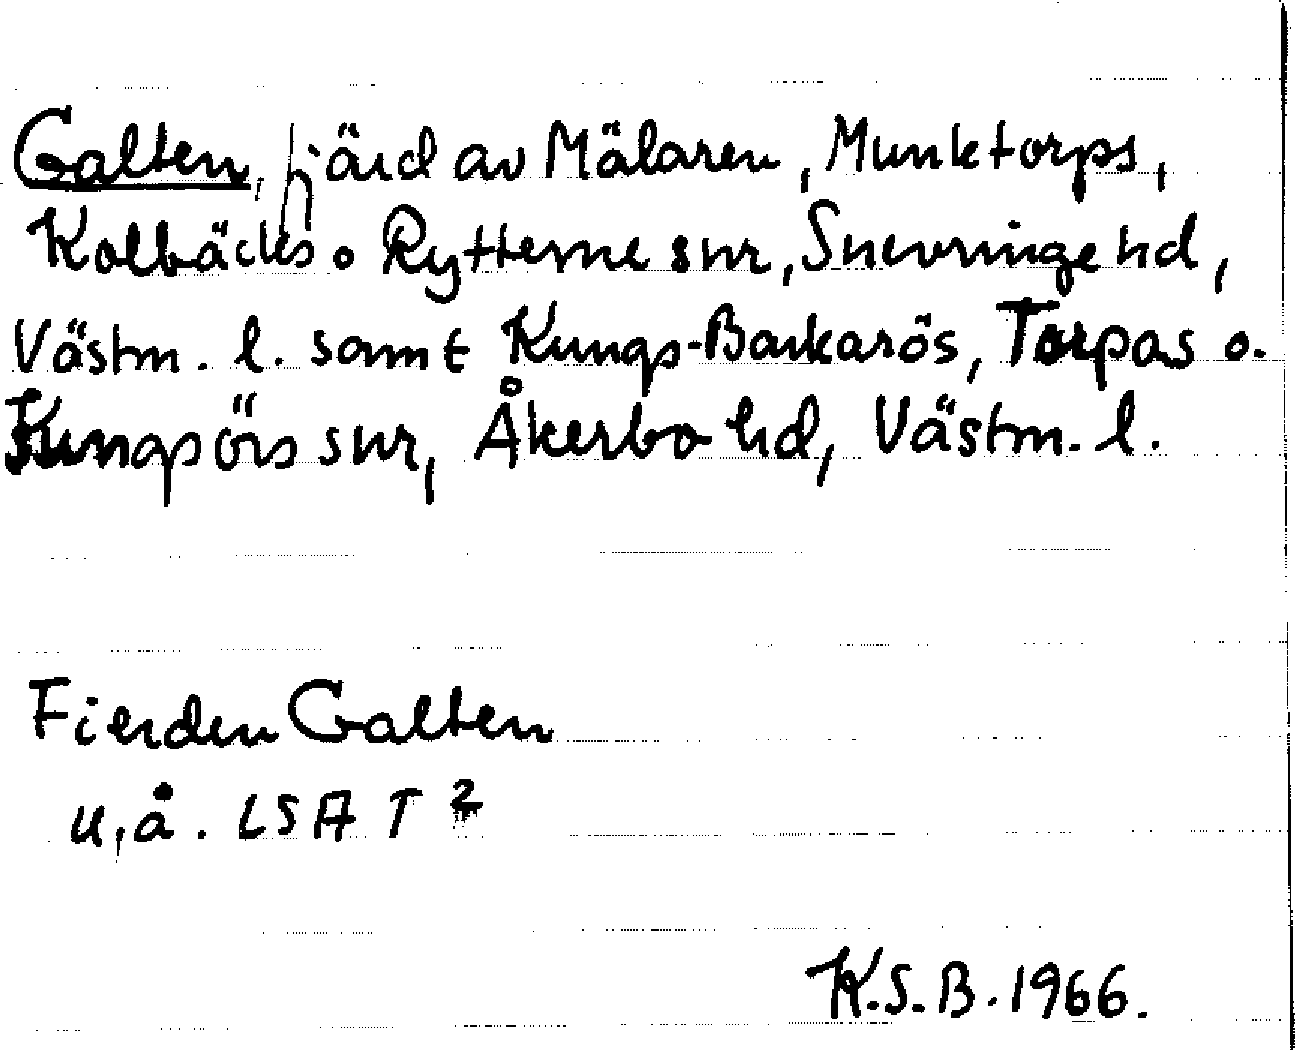 Galten, fjärd av Mälaren, Munktorps,
Kolbäcks o Rytterne snr, Snevringe hd,
Västm. l. samt Kungs-Barkarös, Torpas o.
Kungsörs snr, Åkerbo hd, Västm. l.
Fierden Galten
u,å. LSA T 2
K.S.B. 1966.